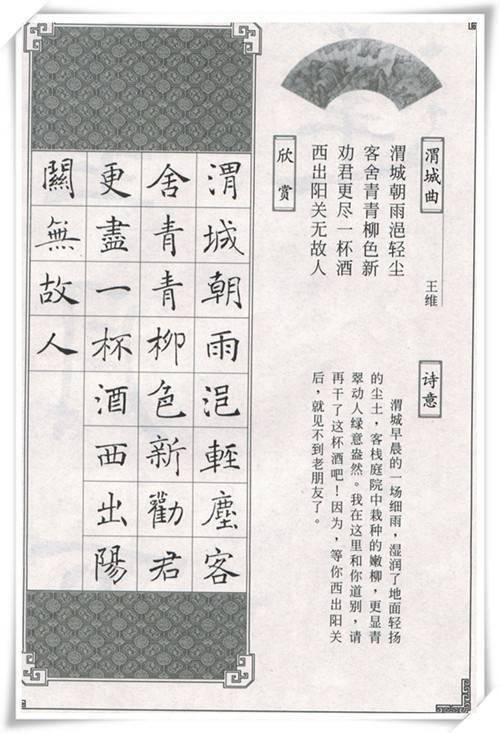 渭城曲
王维
渭城朝雨浥轻尘
客舍青青柳色新
劝君更尽一杯酒
西出阳关无故人
诗意
渭城早晨的一场细雨，湿润了地面轻扬
的尘土，客栈庭院中栽种的嫩柳，更显青
翠动人绿意盎然。我在这里和你道别，请
再干了这杯酒吧！因为，等你西出阳关
后，就见不到老朋友了。
欣赏
渭城朝雨浥輕塵客
舍青青柳色新勸君
更盡一杯酒西出陽
關無故人